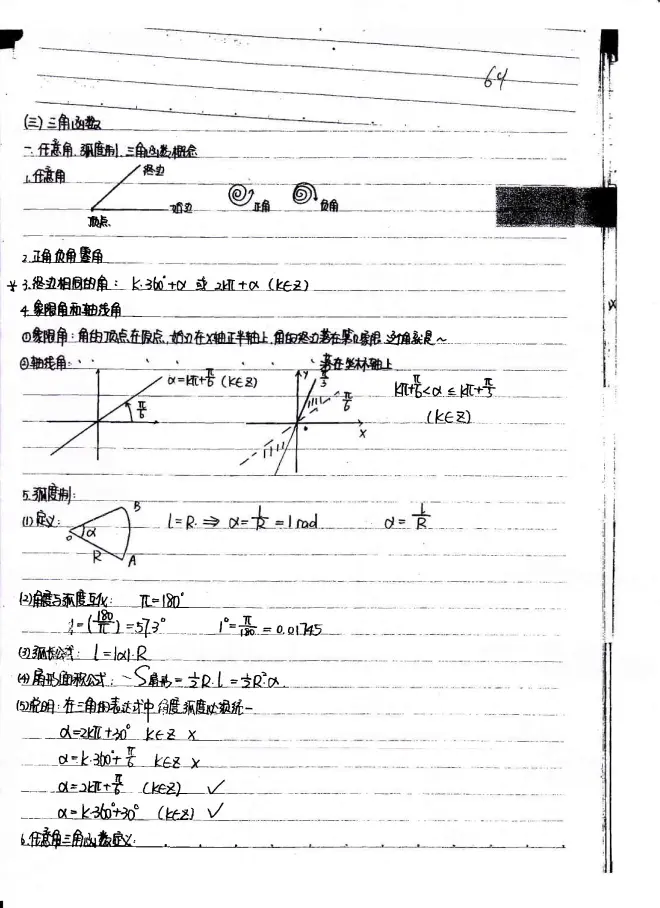 64
(三)三角函数
一.任意角.弧度制.三角函数概念
1.任意角 终边 始边 顶点 正角 负角
2.正角 负角 零角
* 3.终边相同的角: K·360°+α 或 2kπ+α (K∈Z)
4.象限角和轴线角
①象限角:角的顶点在原点,始边在x轴正半轴上,角的终边落在第几象限 这角就是~
②轴线角: 落在坐标轴上
α=kπ+π/6 (K∈Z)
π/6
y π/3 π/6 x
kπ+π/6<α≤kπ+π/3
(K∈Z)
5.弧度制:
(1)定义: O α R A B l=R. ⇒ α=l/R=1rad α=l/R
(2)角度与弧度互化: π=180°
1=(180/π)=57.3° 1°=π/180=0.01745
(3)弧长公式: l=|α|·R
(4)扇形面积公式: S扇形=½R·l=½R²α
(5)说明:在三角的表达式中角度 弧度必须统一
α=2kπ+30° K∈Z ×
α=K·360°+π/6 K∈Z ×
α=2kπ+π/6 (K∈Z) ✓
α=K·360°+30° (K∈Z) ✓
6.任意角三角函数定义: